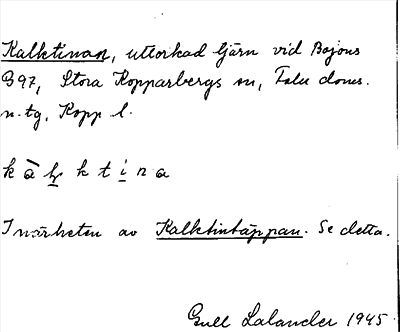 Kalktinan, uttorkad tjärn vid Bojous
B97, Stora Kopparbergs sn, Falu doms.
n. tg, Kopp l.
k à l k t i n a
I närheten av Kalktintäppan. Se detta.
Gull Lalander 1945